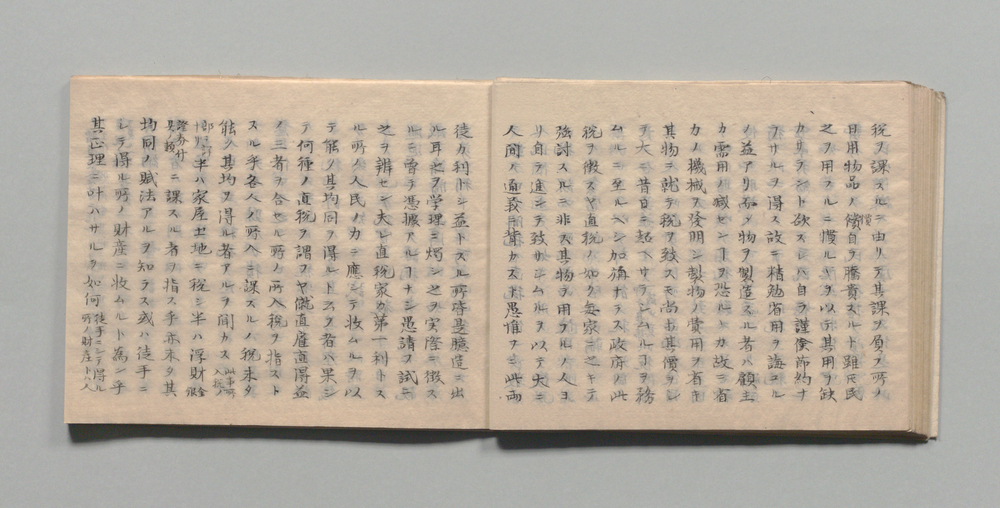 税ヲ課スルニ由リテ其課ヲ原フ所ノ
日用物品ノ價自ヲ騰貴スルト雖氏民
之ヲ用フルニ慣ルヽヲ以テ其用ヲ欠
カサラント欲スレハ自ラ謹倹節約ナ
ラサルヲ得ス故ニ精勉省用ヲ誨ユル
ノ益アリ而〆物ヲ製造スル者ハ顧主
カ需用ノ減センヿヲ恐ルヽカ故ニ省
力ノ機械ヲ発明シ製物ノ費用ヲ省キ
其物ニ就テ税ヲ致スモ尚ホ其價ヲシ
テ大ニ昔日ニ超ヘサラシムルヿヲ務
ムルニ至ルヘシ加旃ナラス政府ノ此
税ヲ徴スヤ直税ノ如ク毎家ニ之ヲ
強討スルニ非ス其物ヲ用フルノ人ヨ
リ自ラ進ンテ致サシムルヲ以テ大ニ
人間ノ通義ヲ カス 愚惟フニ此両
徒カ利トシ益トスル所皆是臆造ニ出
ル耳之ヲ学理ニ燭シ之ヲ実際ニ徴ス
ルニ曽テ憑拠アルヿナシ愚請フ試ニ
之ヲ辨セン夫レ直税家カ第一利トス
ル所ノ人民ノ力ニ應シテ收ムルヲ以
テ能ク其均同ヲ得ルト云ク者ハ果シ
テ何種ノ直税ヲ謂フヤ儱直雇直得益
ノ三者ヲ合セル所ノ所入税ヲ指スト
スル乎各人ノ所入ニ課スルノ税未タ
能ク其均ヲ得ル者アルヲ聞カス
半ハ家屋土地ニ税シ半ハ浮財
證券 ニ課スル者ヲ指ス乎亦未タ其
均同ノ賦法アルヲ知ラス或ハ徒手ニ
シテ得ル所ノ財産ニ收ムルト為ン乎
其正理ニ叶ハサルヲ如何 徒手ニシテ得ル所ノ財産トハ人